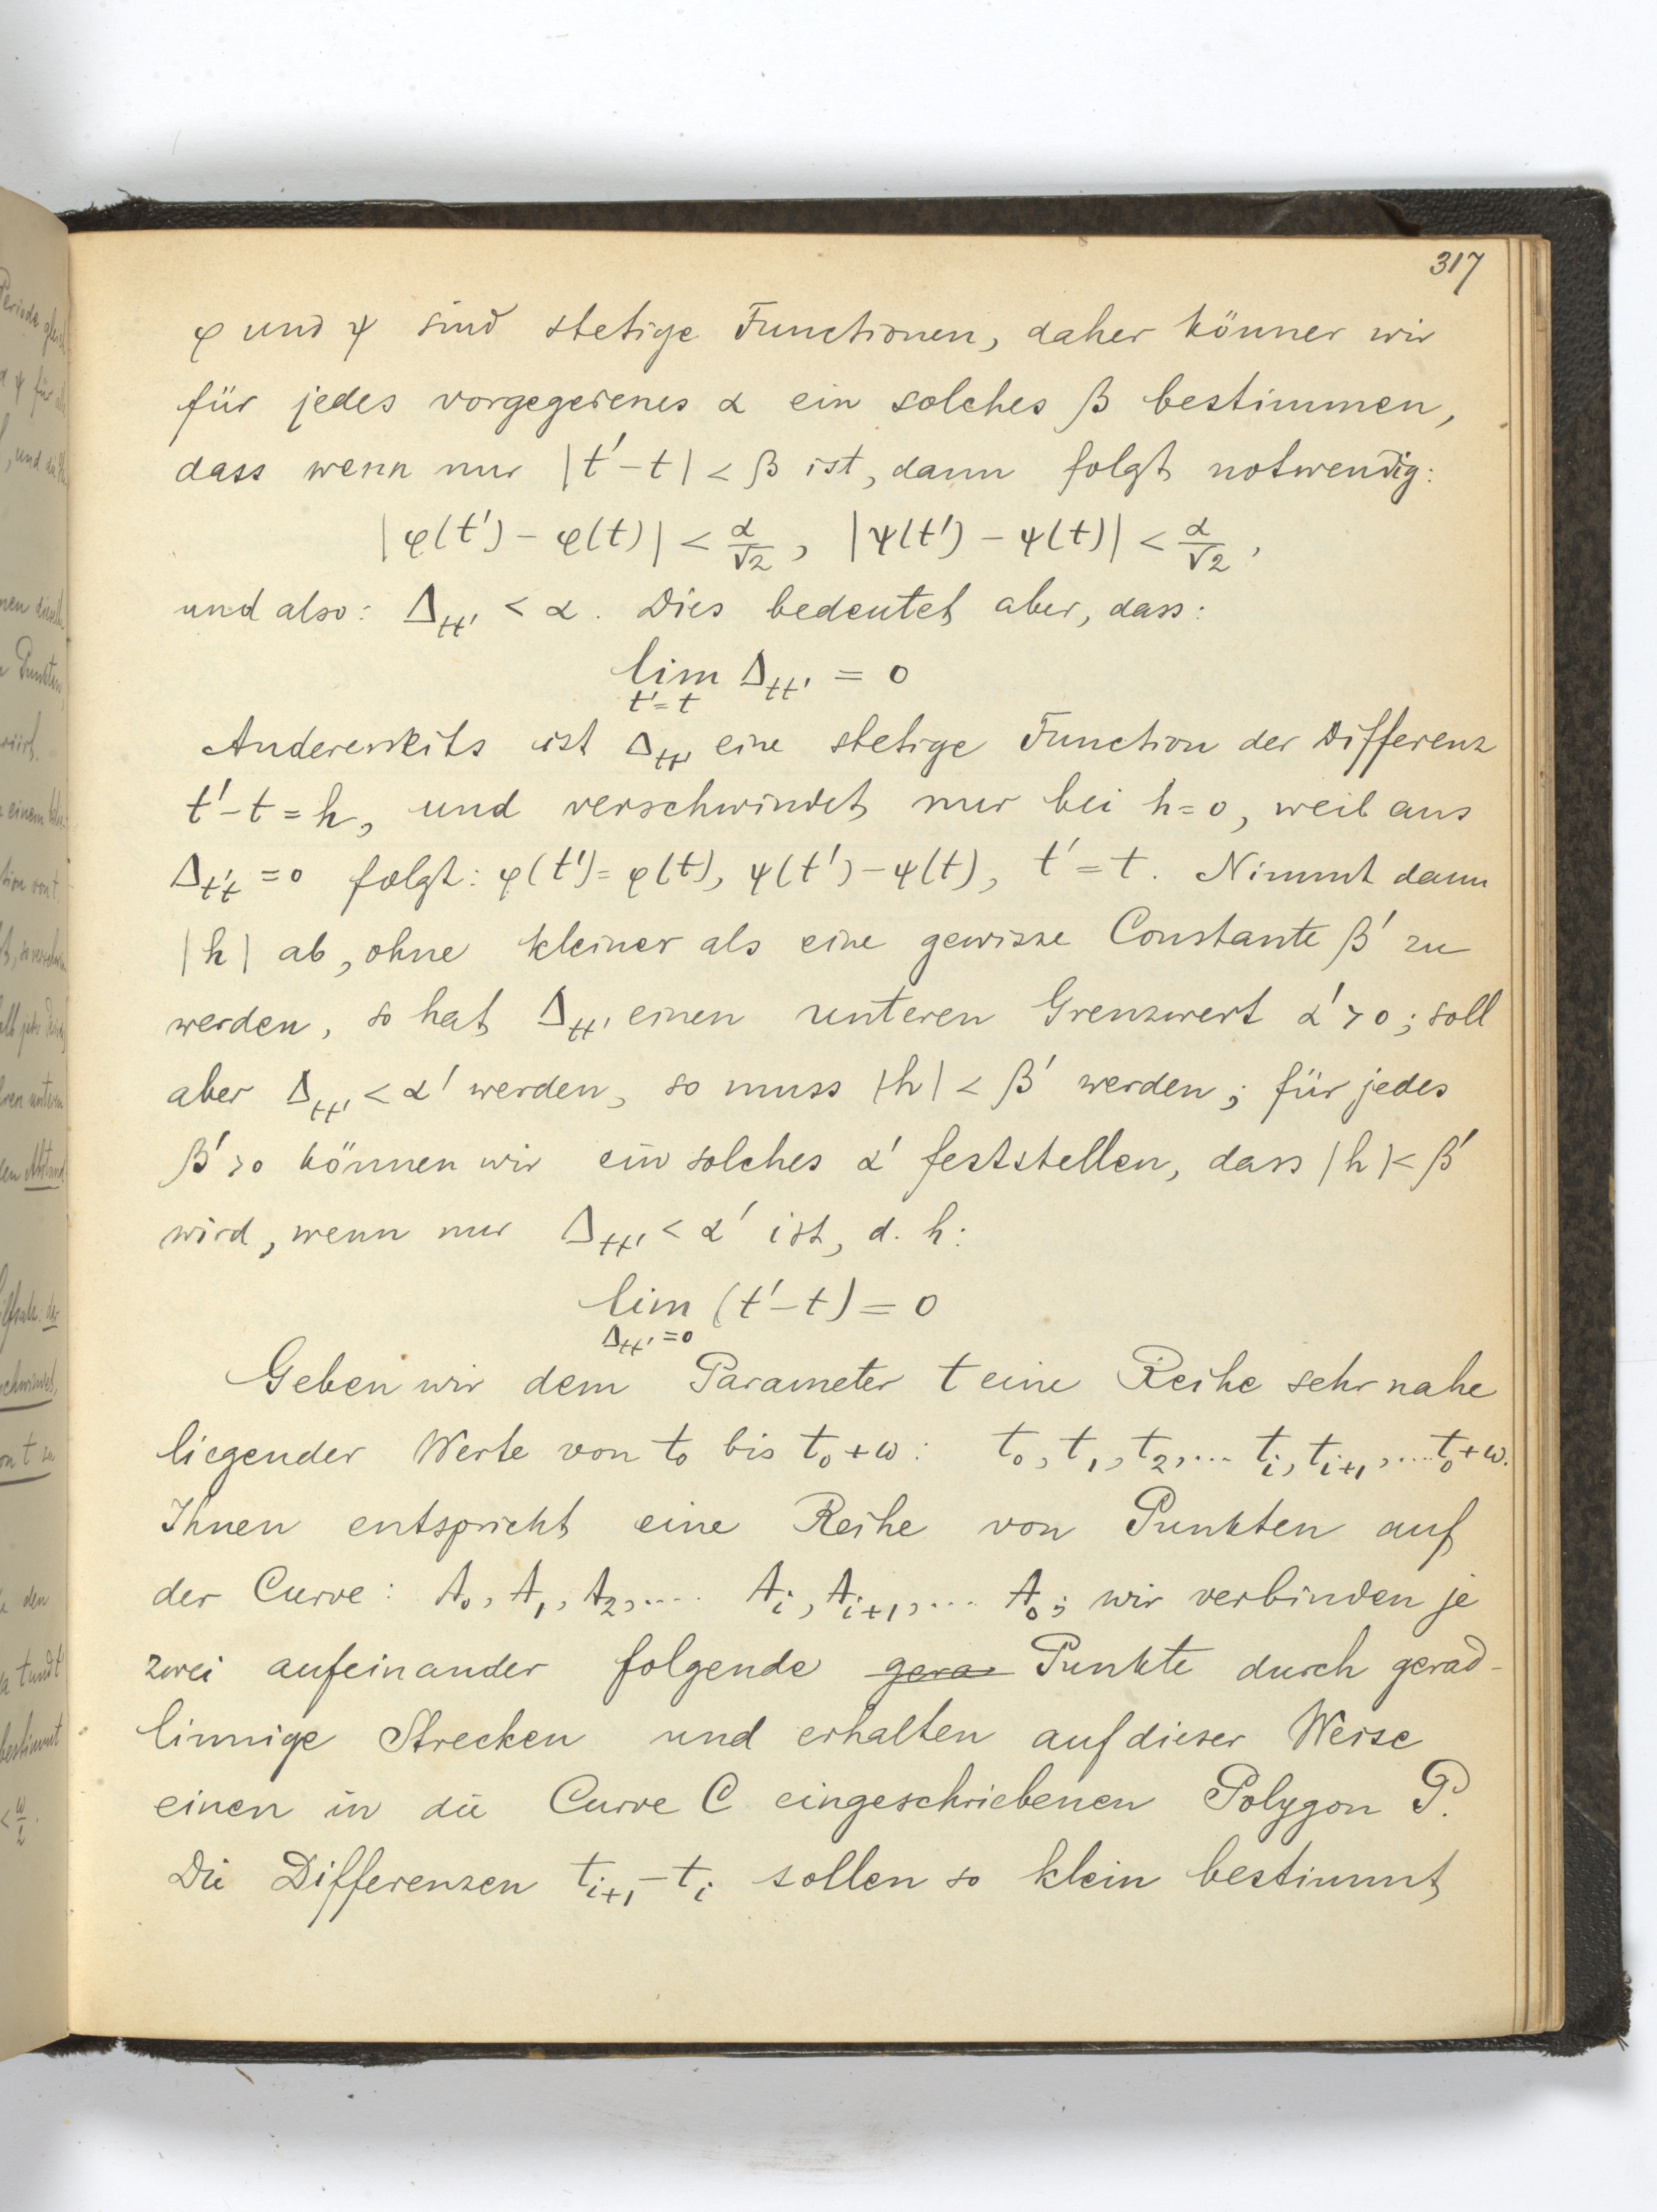 317
φ und ψ sind stetige Functionen, daher könner wir
für jedes vorgegebenes α ein solches β bestimmen,
dass wenn nur |t'-t| < β ist, dann folgt notwendig:
|φ(t') - φ(t)| < α/√2, |ψ(t') - ψ(t)| < α/√2,
und also: Δ_tt' < α. Dies bedeutet aber, dass:
lim Δ_tt' = 0
t'=t
Andererseits ist Δ_tt' eine stetige Function der Differenz
t'-t = h, und verschwindet nur bei h=0, weil aus
Δ_t't = 0 folgt: φ(t') = φ(t), ψ(t') - ψ(t), t' = t. Nimmt dann
|h| ab, ohne kleiner als eine gewisse Constante β' zu
werden, so hat Δ_tt' einen unteren Grenzwert α' > 0; soll
aber Δ_tt' < α' werden, so muss |h| < β' werden; für jedes
β' > 0 können wir ein solches α' feststellen, dass |h| < β'
wird, wenn nur Δ_tt' < α' ist, d. h:
lim (t'-t) = 0
Δ_tt' = 0
Geben wir dem Parameter t eine Reihe sehr nahe
liegender Werte von t₀ bis t₀+ω: t₀, t₁, t₂,... t_i, t_i+1,.... t₀+ω.
Ihnen entspricht eine Reihe von Punkten auf
der Curve: A₀, A₁, A₂,.... A_i, A_i+1,... A₀; wir verbinden je
zwei aufeinander folgende gera Punkte durch gerad-
linnige Strecken und erhalten auf dieser Weise
einen in die Curve C eingeschriebenen Polygon P.
Die Differenzen t_i+1 - t_i sollen so klein bestimmt